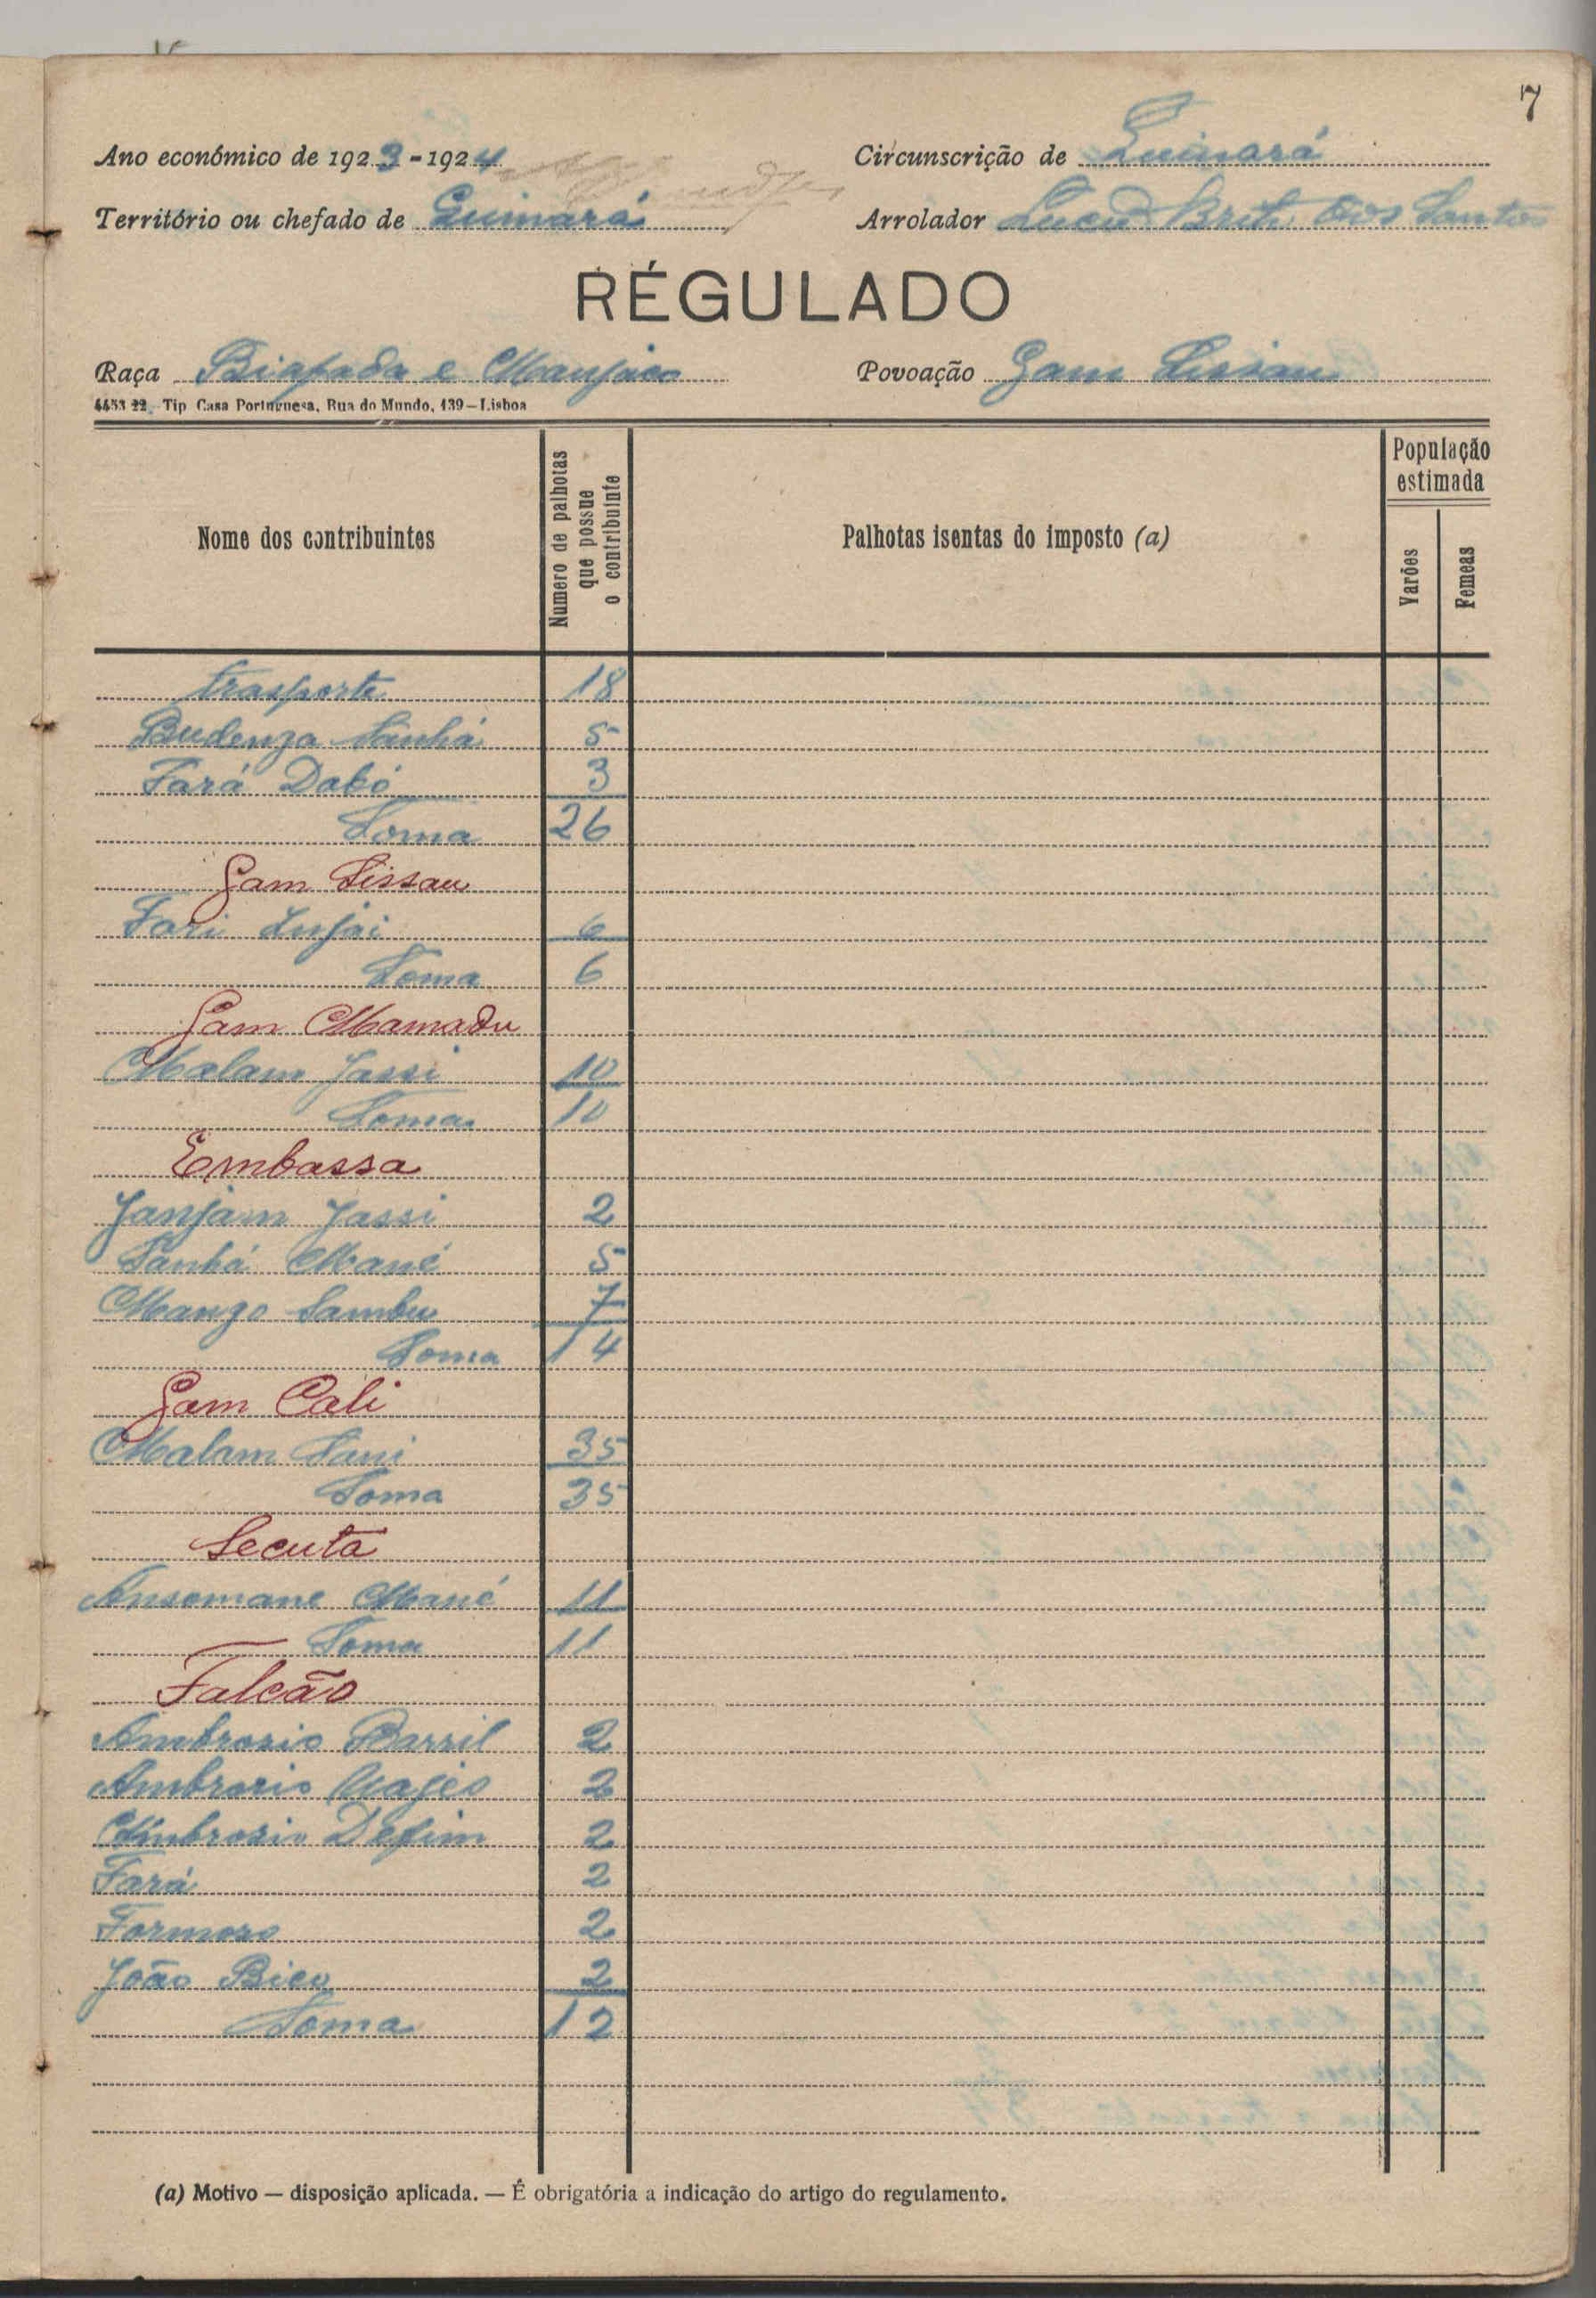 7
Ano económico de 1923-1924 Circunscrição de Quinará
Território ou chefado de Guinará Arrolador Brito dos Santos
RÉGULADO
Raça Biafada e Manjaco Povoação Gam Sissau
4453 22 Tip Casa Portuguesa, Rua do Mundo, 139—Lisboa
Nome dos contribuintes Numero de palhotas que possue o contribuinte Palhotas isentas do imposto (a) População estimada Varões Femeas
Trasporte 18
Budenga Sanhá 5
Fará Dabó 3
Soma 26
Gam Sissau
Fari Injai 6
Soma 6
Gam Mamadu
Malam Jassi 10
Soma 10
Embassa
Janjam Jassi 2
Sanhá Mané 5
Mango Sambu 7
Soma 14
Gam Cali
Malam Sani 35
Soma 35
Secuta
Ansomane Mané 11
Soma 11
Falcão
Ambrosio Barril 2
Ambrosio 2
Ambrosio Defim 2
Fará 2
Formoso 2
João Bico 2
Soma 12
(a) Motivo — disposição aplicada. — É obrigatória a indicação do artigo do regulamento.